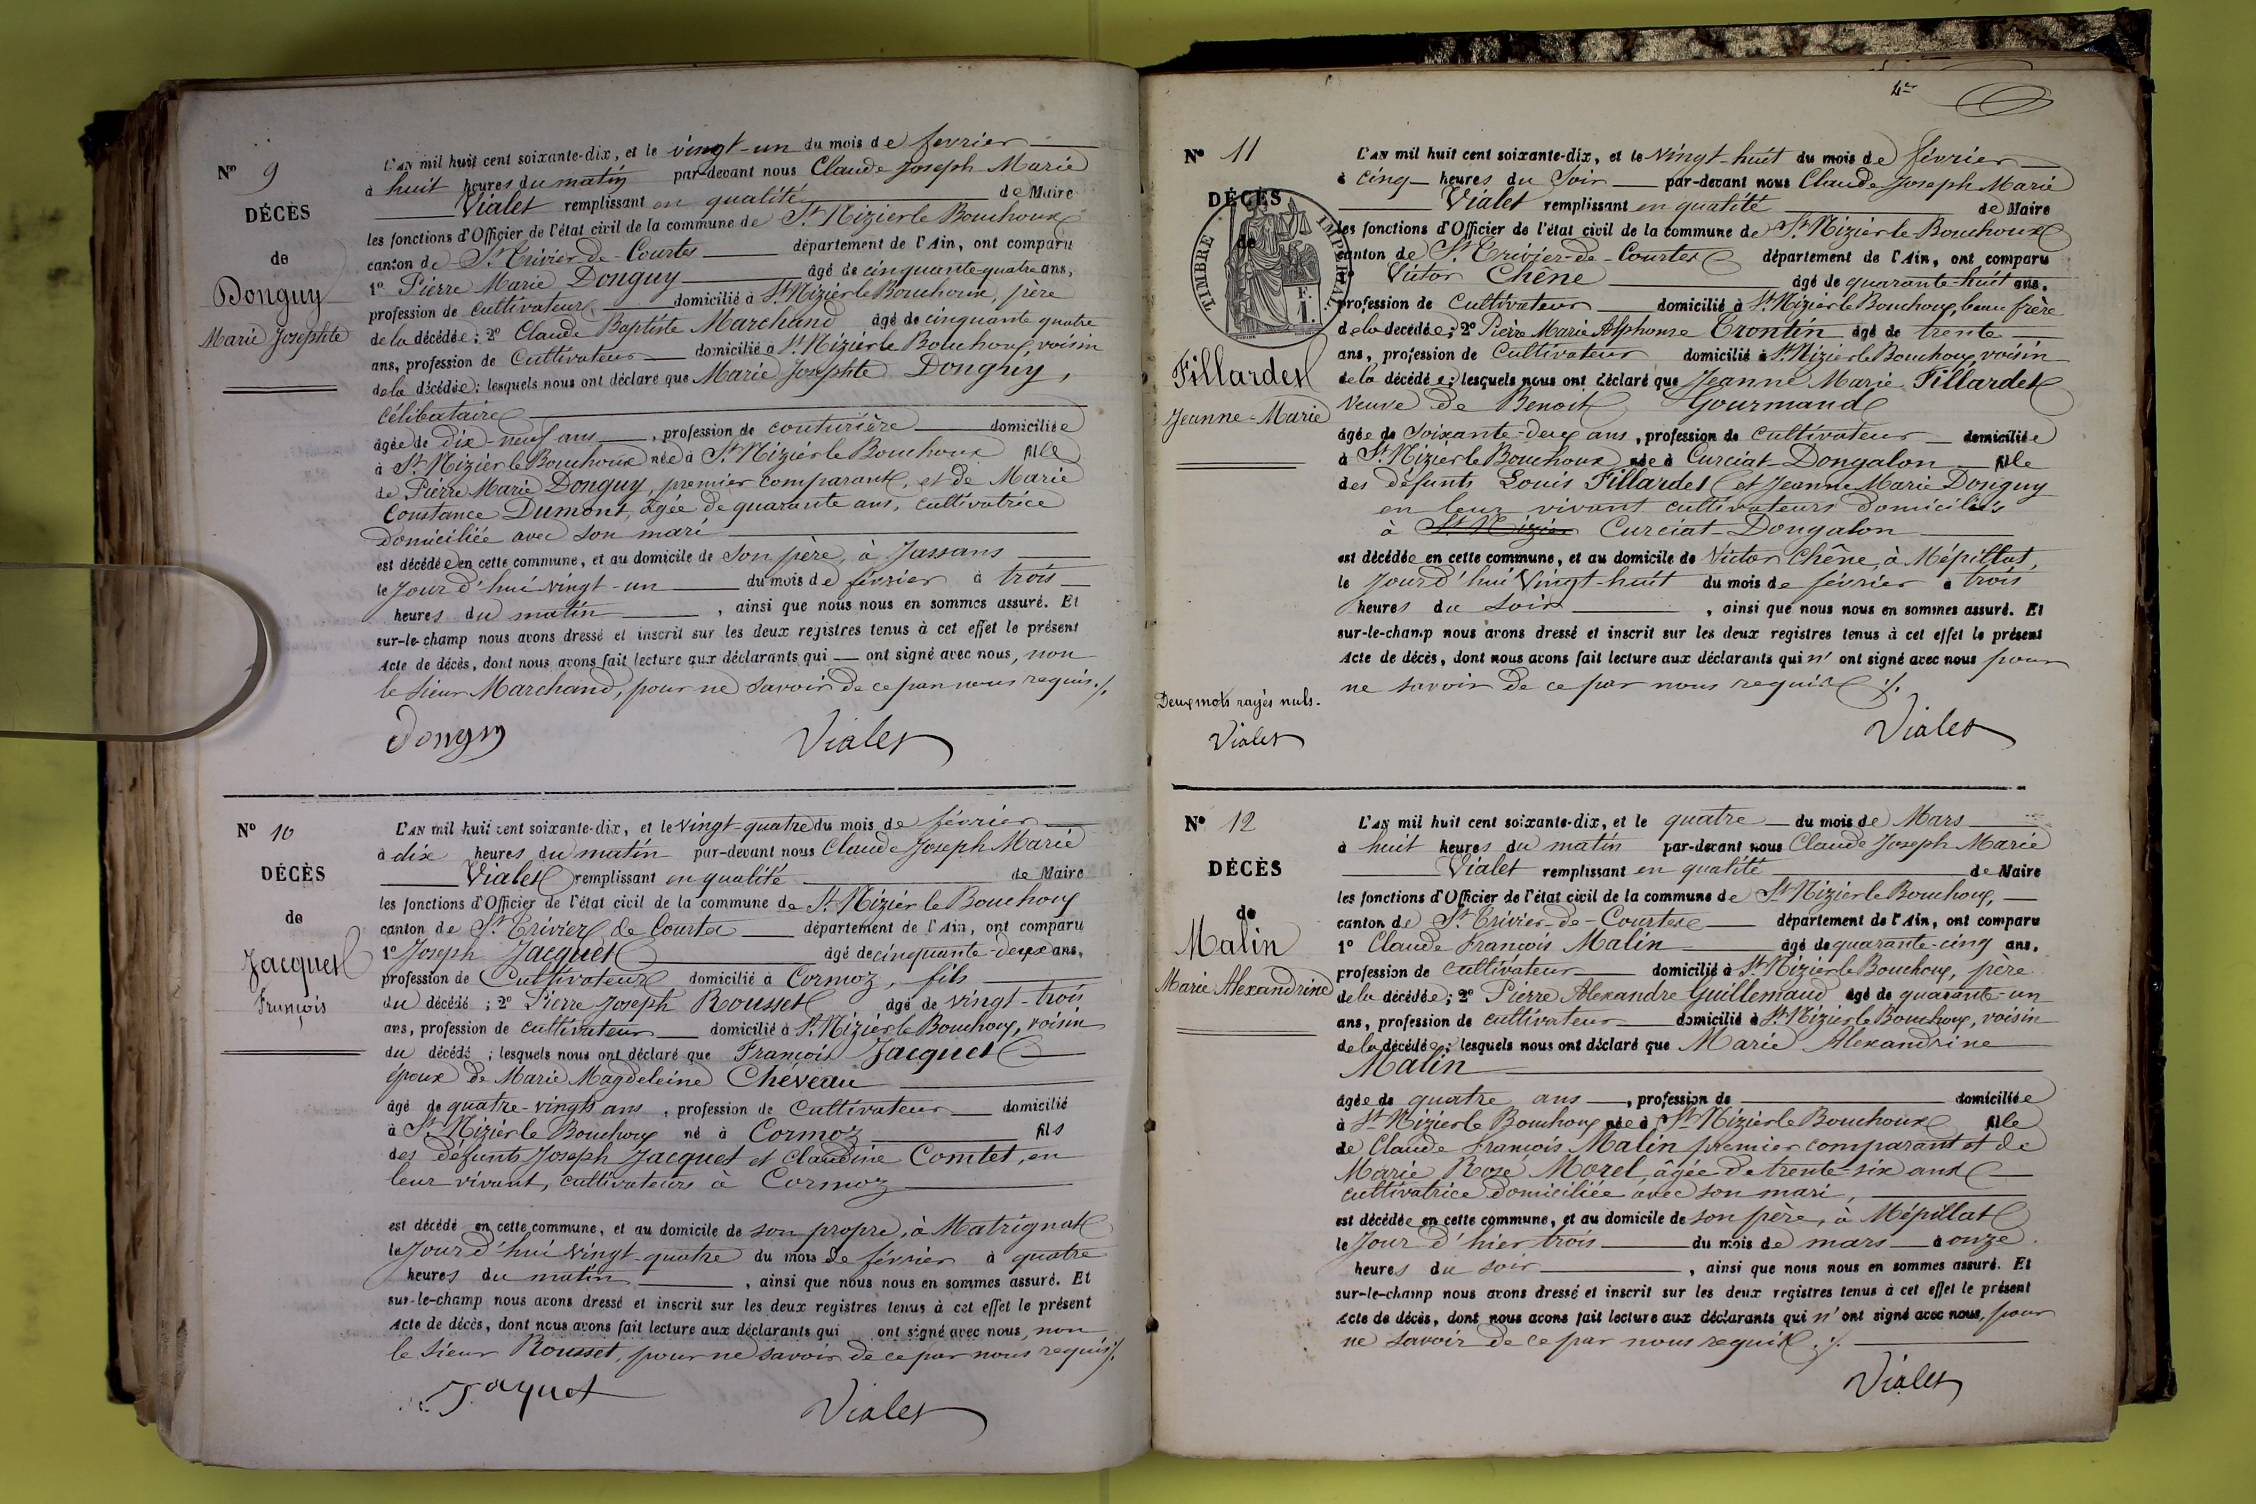 Nº 9
DÉCÈS
de
Donguy
Marie Josephte
L'AN mil huit cent soixante-dix, et le vingt-un du mois de fevrier
à huit heures du matin par-devant nous Claude Joseph Marie
Vialet remplissant en qualité de Maire
les fonctions d'Officier de l'état civil de la commune de St Nizier le Bouchoux
canton de St Trivier-de-Courtes département de l'Ain, ont comparu
1º Pierre Marie Donguy âgé de cinquante quatre ans,
profession de cultivateur domicilié à St Nizier le Bouchoux, père
de la décédée; 2º Claude Baptiste Marchand âgé de cinquante quatre
ans, profession de Cultivateur domicilié à St Nizier le Bouchoux, voisin
de la décédée; lesquels nous ont déclaré que Marie Josephte Donguy,
célibataire
âgée de dix-neuf ans, profession de couturière domiciliée
à St Nizier le Bouchoux née à St Nizier le Bouchoux fille
de Pierre Marie Donguy, premier comparant, et de Marie
Constance Dumont, âgée de quarante ans, cultivatrice
domiciliée avec son mari
est décédée en cette commune, et au domicile de son père, à Jassans
le Jour d'hui vingt-un du mois de février à trois
heures du matin, ainsi que nous nous en sommes assuré. Et
sur-le-champ nous avons dressé et inscrit sur les deux registres tenus à cet effet le présent
Acte de décès, dont nous avons fait lecture aux déclarants qui — ont signé avec nous, non
le sieur Marchand, pour ne savoir de ce par nous requis ./.
Donguy Vialet
Nº 10
DÉCÈS
de
Jacquet
François
L'AN mil huit cent soixante-dix, et le vingt-quatre du mois de février
à dix heures du matin par-devant nous Claude Joseph Marie
Vialet remplissant en qualité de Maire
les fonctions d'Officier de l'état civil de la commune de St Nizier le Bouchoux
canton de St Trivier de Courtes département de l'Ain, ont comparu
1º Joseph Jacquet âgé de cinquante-deux ans,
profession de Cultivateur domicilié à Cormoz, fils
du décédé; 2º Pierre Joseph Rousset âgé de vingt-trois
ans, profession de cultivateur domicilié à St Nizier le Bouchoux, voisin
du décédé; lesquels nous ont déclaré que François Jacquet
époux de Marie Magdeleine Chéveau
âgé de quatre-vingts ans, profession de Cultivateur domicilié
à St Nizier le Bouchoux né à Cormoz fils
des défunts Joseph Jacquet et Claudine Comtet, en
leur vivant, cultivateurs à Cormoz
est décédé en cette commune, et au domicile de son propre, à Matrignat
le Jour d'hui vingt-quatre du mois de février à quatre
heures du matin, ainsi que nous nous en sommes assuré. Et
sur-le-champ nous avons dressé et inscrit sur les deux registres tenus à cet effet le présent
Acte de décès, dont nous avons fait lecture aux déclarants qui ont signé avec nous, non
le sieur Rousset, pour ne savoir de ce par nous requis ./.
Jaquet Vialet
4e
Nº 11
DÉCÈS
de
TIMBRE IMPÉRIAL
1 F.
Fillardet
Jeanne-Marie
L'AN mil huit cent soixante-dix, et le vingt-huit du mois de février
à cinq heures du Soir par-devant nous Claude Joseph Marie
Vialet remplissant en qualité de Maire
les fonctions d'Officier de l'état civil de la commune de St Nizier le Bouchoux
canton de St Trivier-de-Courtes département de l'Ain, ont comparu
1º Victor Chêne âgé de quarante-huit ans.
profession de Cultivateur domicilié à St Nizier le Bouchoux, beau frère
de la décédée; 2º Pierre Marie Alphonse Trontin âgé de trente
ans, profession de Cultivateur domicilié à St Nizier le Bouchoux, voisin
de la décédée; lesquels nous ont déclaré que Jeanne Marie Fillardet
veuve de Benoit Gourmand
âgée de soixante-deux ans, profession de cultivateur domiciliée
à St Nizier le Bouchoux née à Curciat-Dongalon fille
des défunts Louis Fillardet et Jeanne Marie Donguy
en leur vivant cultivateurs domiciliés
à St Nizier Curciat-Dongalon
est décédée en cette commune, et au domicile de Victor Chêne, à Mépillat,
le Jour d'hui Vingt-huit du mois de février à trois
heures du soir, ainsi que nous nous en sommes assuré. Et
sur-le-champ nous avons dressé et inscrit sur les deux registres tenus à cet effet le présent
Acte de décès, dont nous avons fait lecture aux déclarants qui n'ont signé avec nous pour
ne savoir de ce par nous requis ./.
Deux mots rayés nuls.
Vialet
Vialet
Nº 12
DÉCÈS
de
Malin
Marie Alexandrine
L'AN mil huit cent soixante-dix, et le quatre du mois de Mars
à huit heures du matin par-devant nous Claude Joseph Marie
Vialet remplissant en qualité de Maire
les fonctions d'Officier de l'état civil de la commune de St Nizier le Bouchoux,
canton de St Trivier-de-Courtes département de l'Ain, ont comparu
1º Claude François Malin âgé de quarante-cinq ans,
profession de cultivateur domicilié à St Nizier le Bouchoux, père
de la décédée; 2º Pierre Alexandre Guillemaud âgé de quarante-un
ans, profession de cultivateur domicilié à St Nizier le Bouchoux, voisin
de la décédée; lesquels nous ont déclaré que Marie Alexandrine
Malin
âgée de quatre ans, profession de domiciliée
à St Nizier le Bouchoux née à St Nizier le Bouchoux fille
de Claude François Malin premier comparant et de
Marie Rose Morel, âgée de trente-six ans
cultivatrice domiciliée avec son mari,
est décédée en cette commune, et au domicile de son père, à Mépillat
le Jour d'hier trois du mois de mars à onze
heures du soir, ainsi que nous nous en sommes assuré. Et
sur-le-champ nous avons dressé et inscrit sur les deux registres tenus à cet effet le présent
Acte de décès, dont nous avons fait lecture aux déclarants qui n'ont signé avec nous, pour
ne savoir de ce par nous requis ./.
Vialet